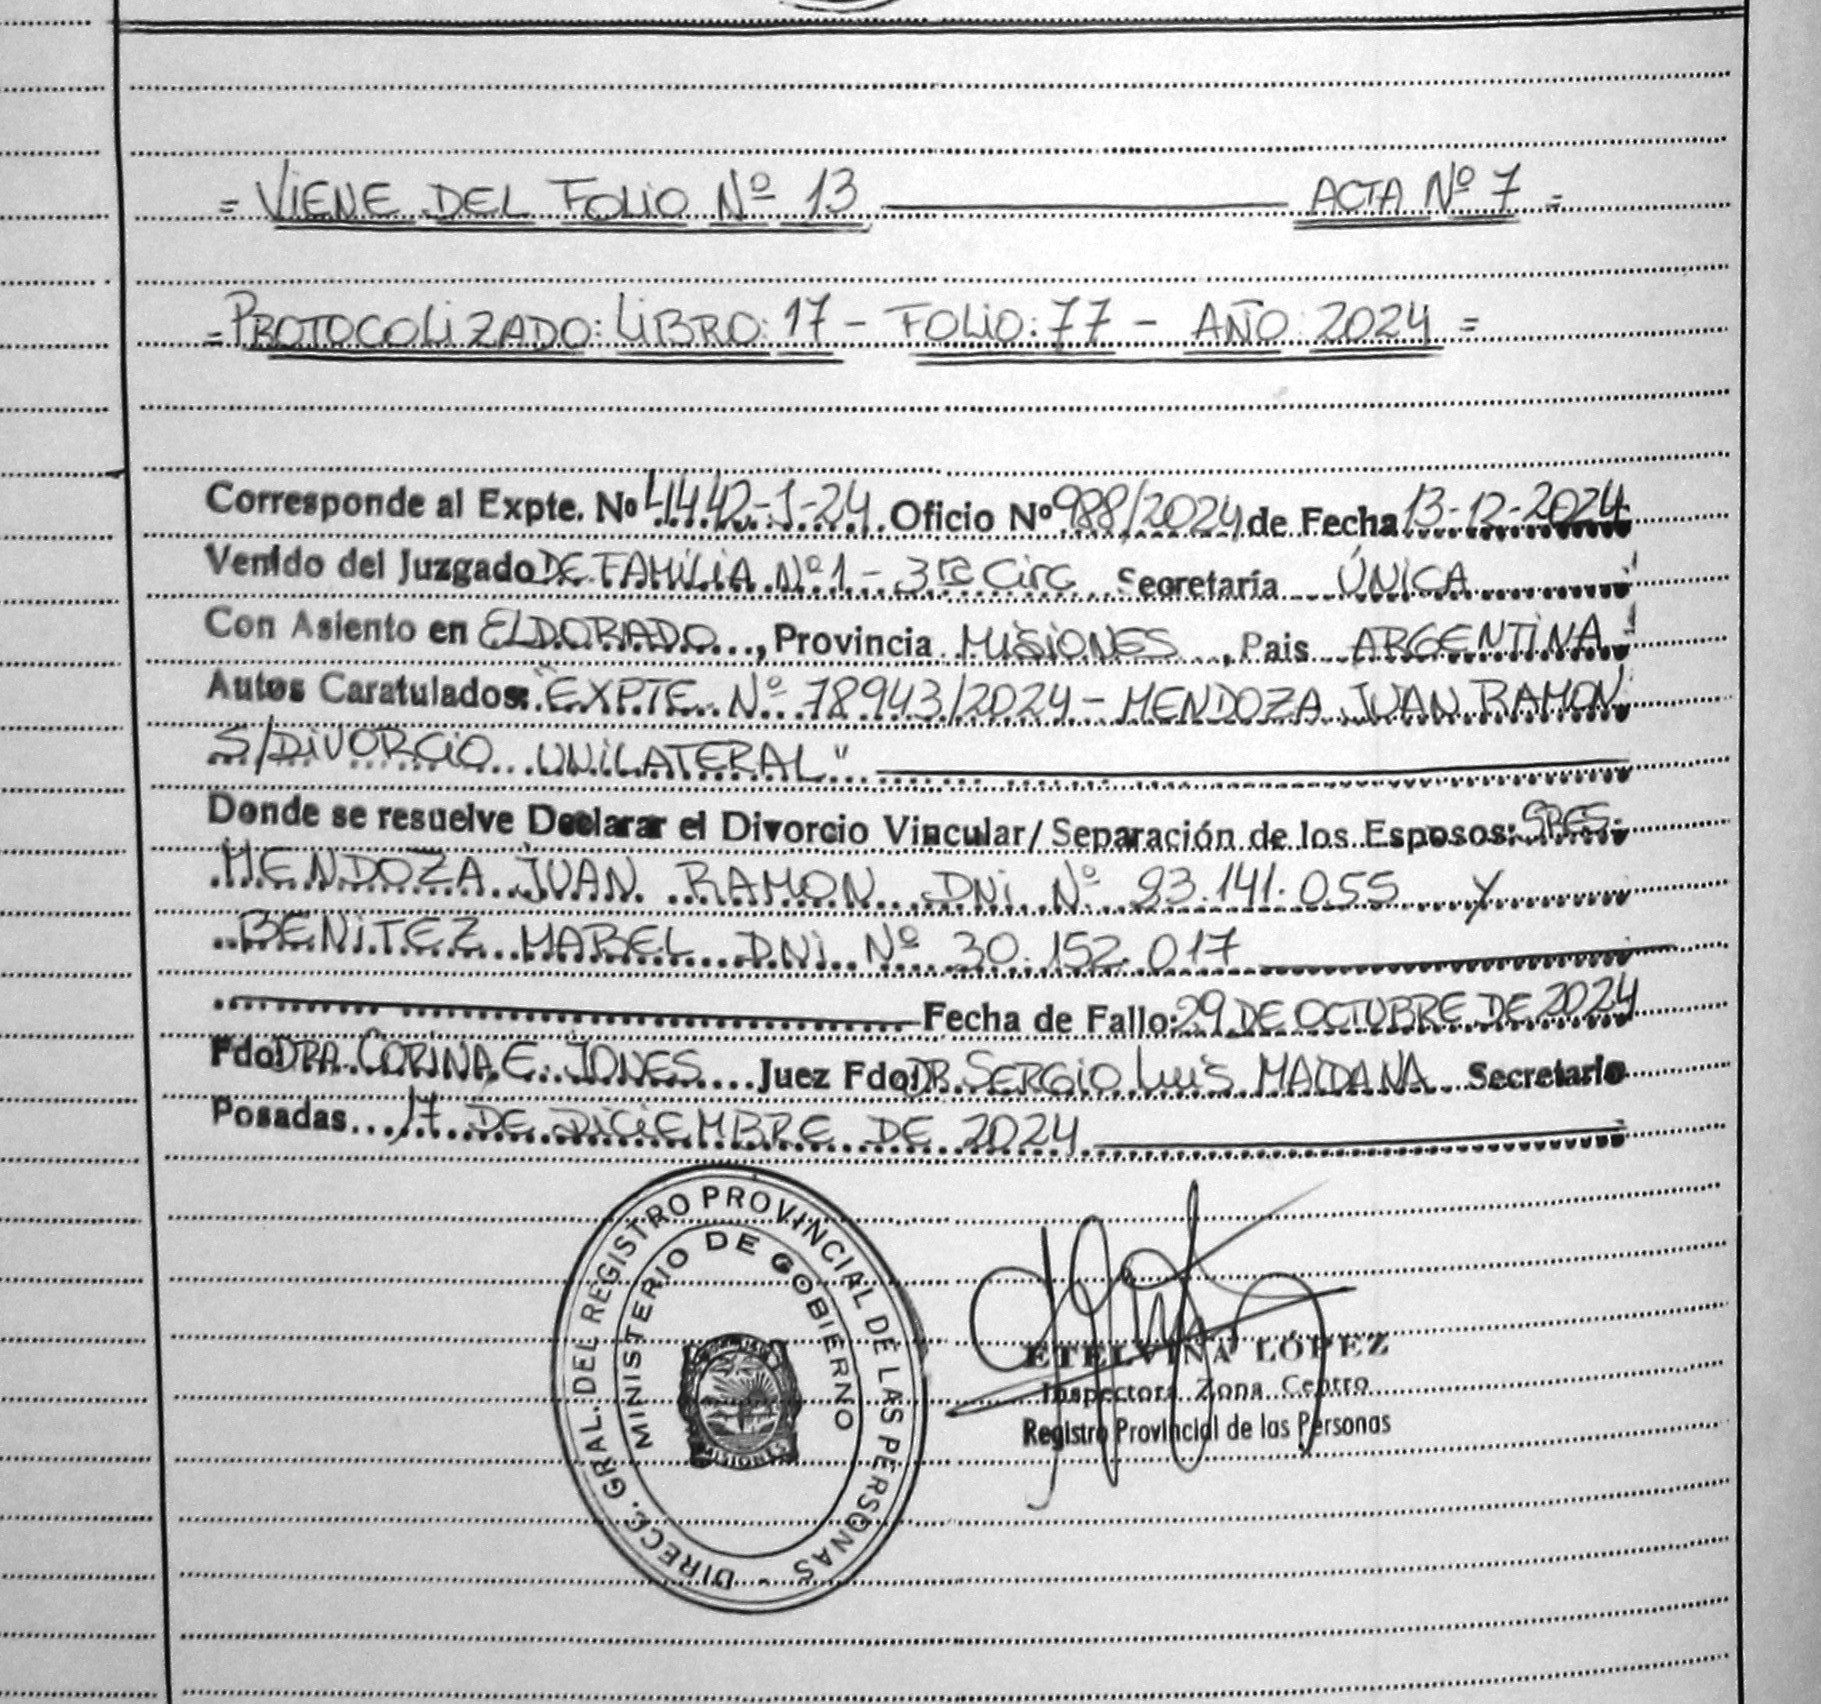 = VIENE DEL FOLIO Nº 13 ACTA Nº 7 =
= PROTOCOLIZADO: LIBRO: 17 - FOLIO: 77 - AÑO: 2024 =
Corresponde al Expte. Nº 4442-1-24 Oficio Nº 988/2024 de Fecha 13-12-2024
Venido del Juzgado DE FAMILIA Nº 1 - 3ra Circ Secretaría ÚNICA
Con Asiento en ELDORADO, Provincia MISIONES, Pais ARGENTINA
Autos Caratulados: "EXPTE. Nº 78943/2024 - MENDOZA JUAN RAMON
S/DIVORCIO UNILATERAL"
Donde se resuelve Declarar el Divorcio Vincular/ Separación de los Esposos: SRES.
MENDOZA JUAN RAMON DNI Nº 93.141.055 Y
BENITEZ MABEL DNI Nº 30.152.017
Fecha de Fallo: 29 DE OCTUBRE DE 2024
Fdo: DRA. CORINA E. JONES Juez Fdo: DR. SERGIO LUIS MAIDANA Secretario
Posadas 17 DE DICIEMBRE DE 2024
DIRECC. GRAL. DEL REGISTRO PROVINCIAL DE LAS PERSONAS -
MINISTERIO DE GOBIERNO
MISIONES
ETELVINA LÓPEZ
Inspectora Zona Centro
Registro Provincial de las Personas